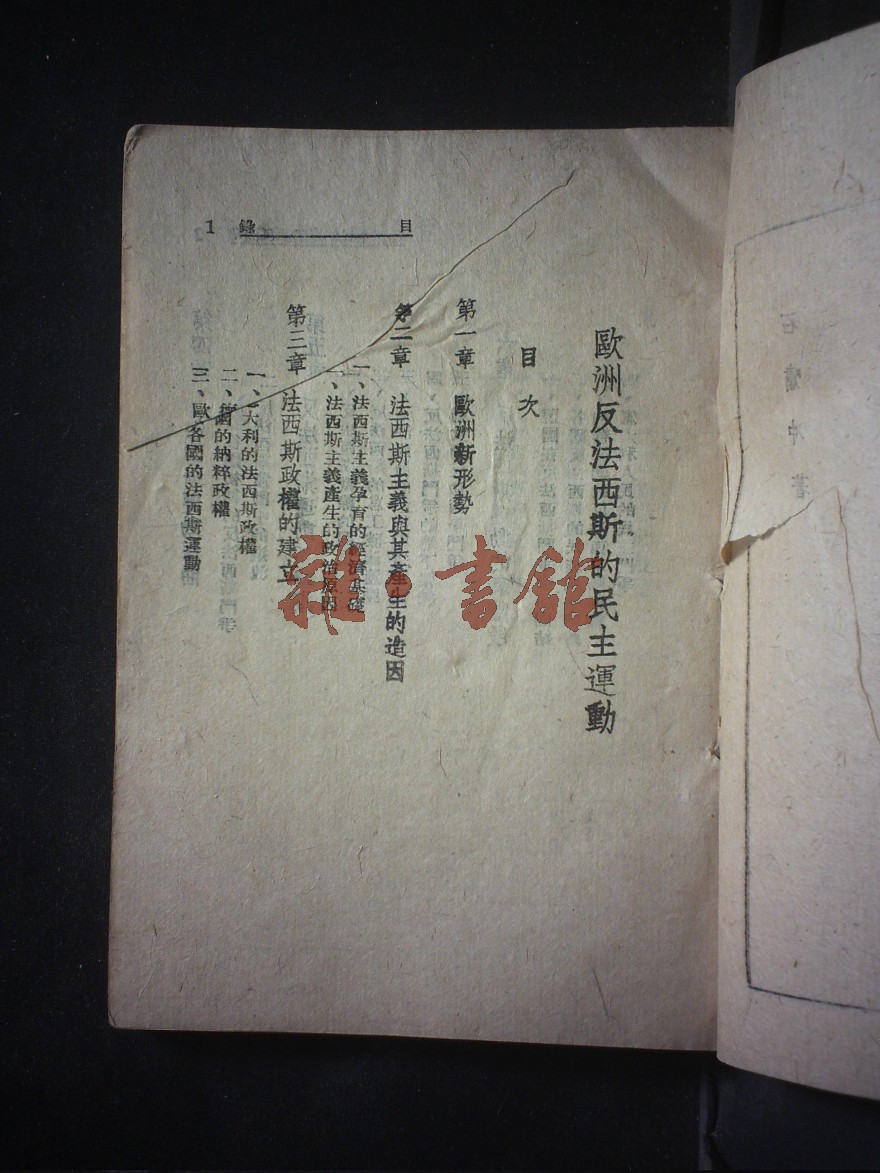 目 錄 1
歐洲反法西斯的民主運動
目次
第一章 歐洲新形勢
第二章 法西斯主義與其產生的造因
一、法西斯主義孕育的經濟基礎
、法西斯主義產生的政治原因
第三章 法西斯政權的建立
一、大利的法西斯政權
二、德國的納粹政權
三、歐各國的法西斯運動
雜·書館